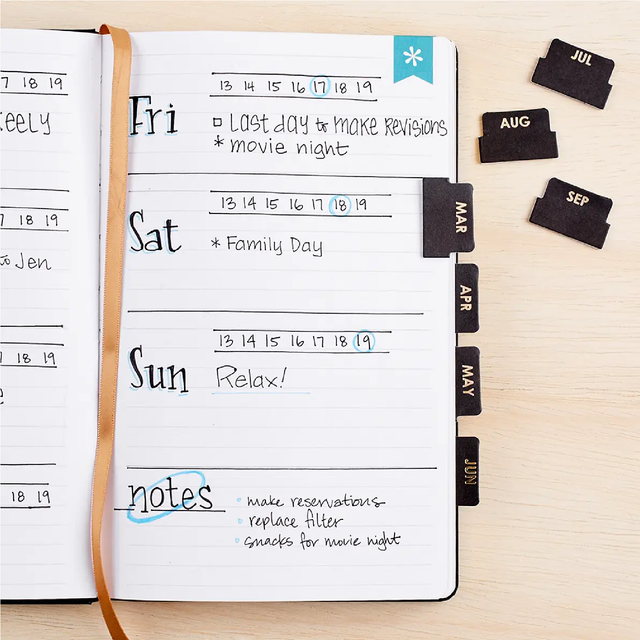 7 18 19
eely
7 18 19
to Jen
7 18 19
18 19
Fri
13 14 15 16 17 18 19
Last day to make Revisions
* movie night
Sat
13 14 15 16 17 18 19
* Family Day
Sun
13 14 15 16 17 18 19
Relax!
notes
make reservations
replace filter
snacks for movie night
*
MAR
APR
MAY
JUN
JUL
AUG
SEP